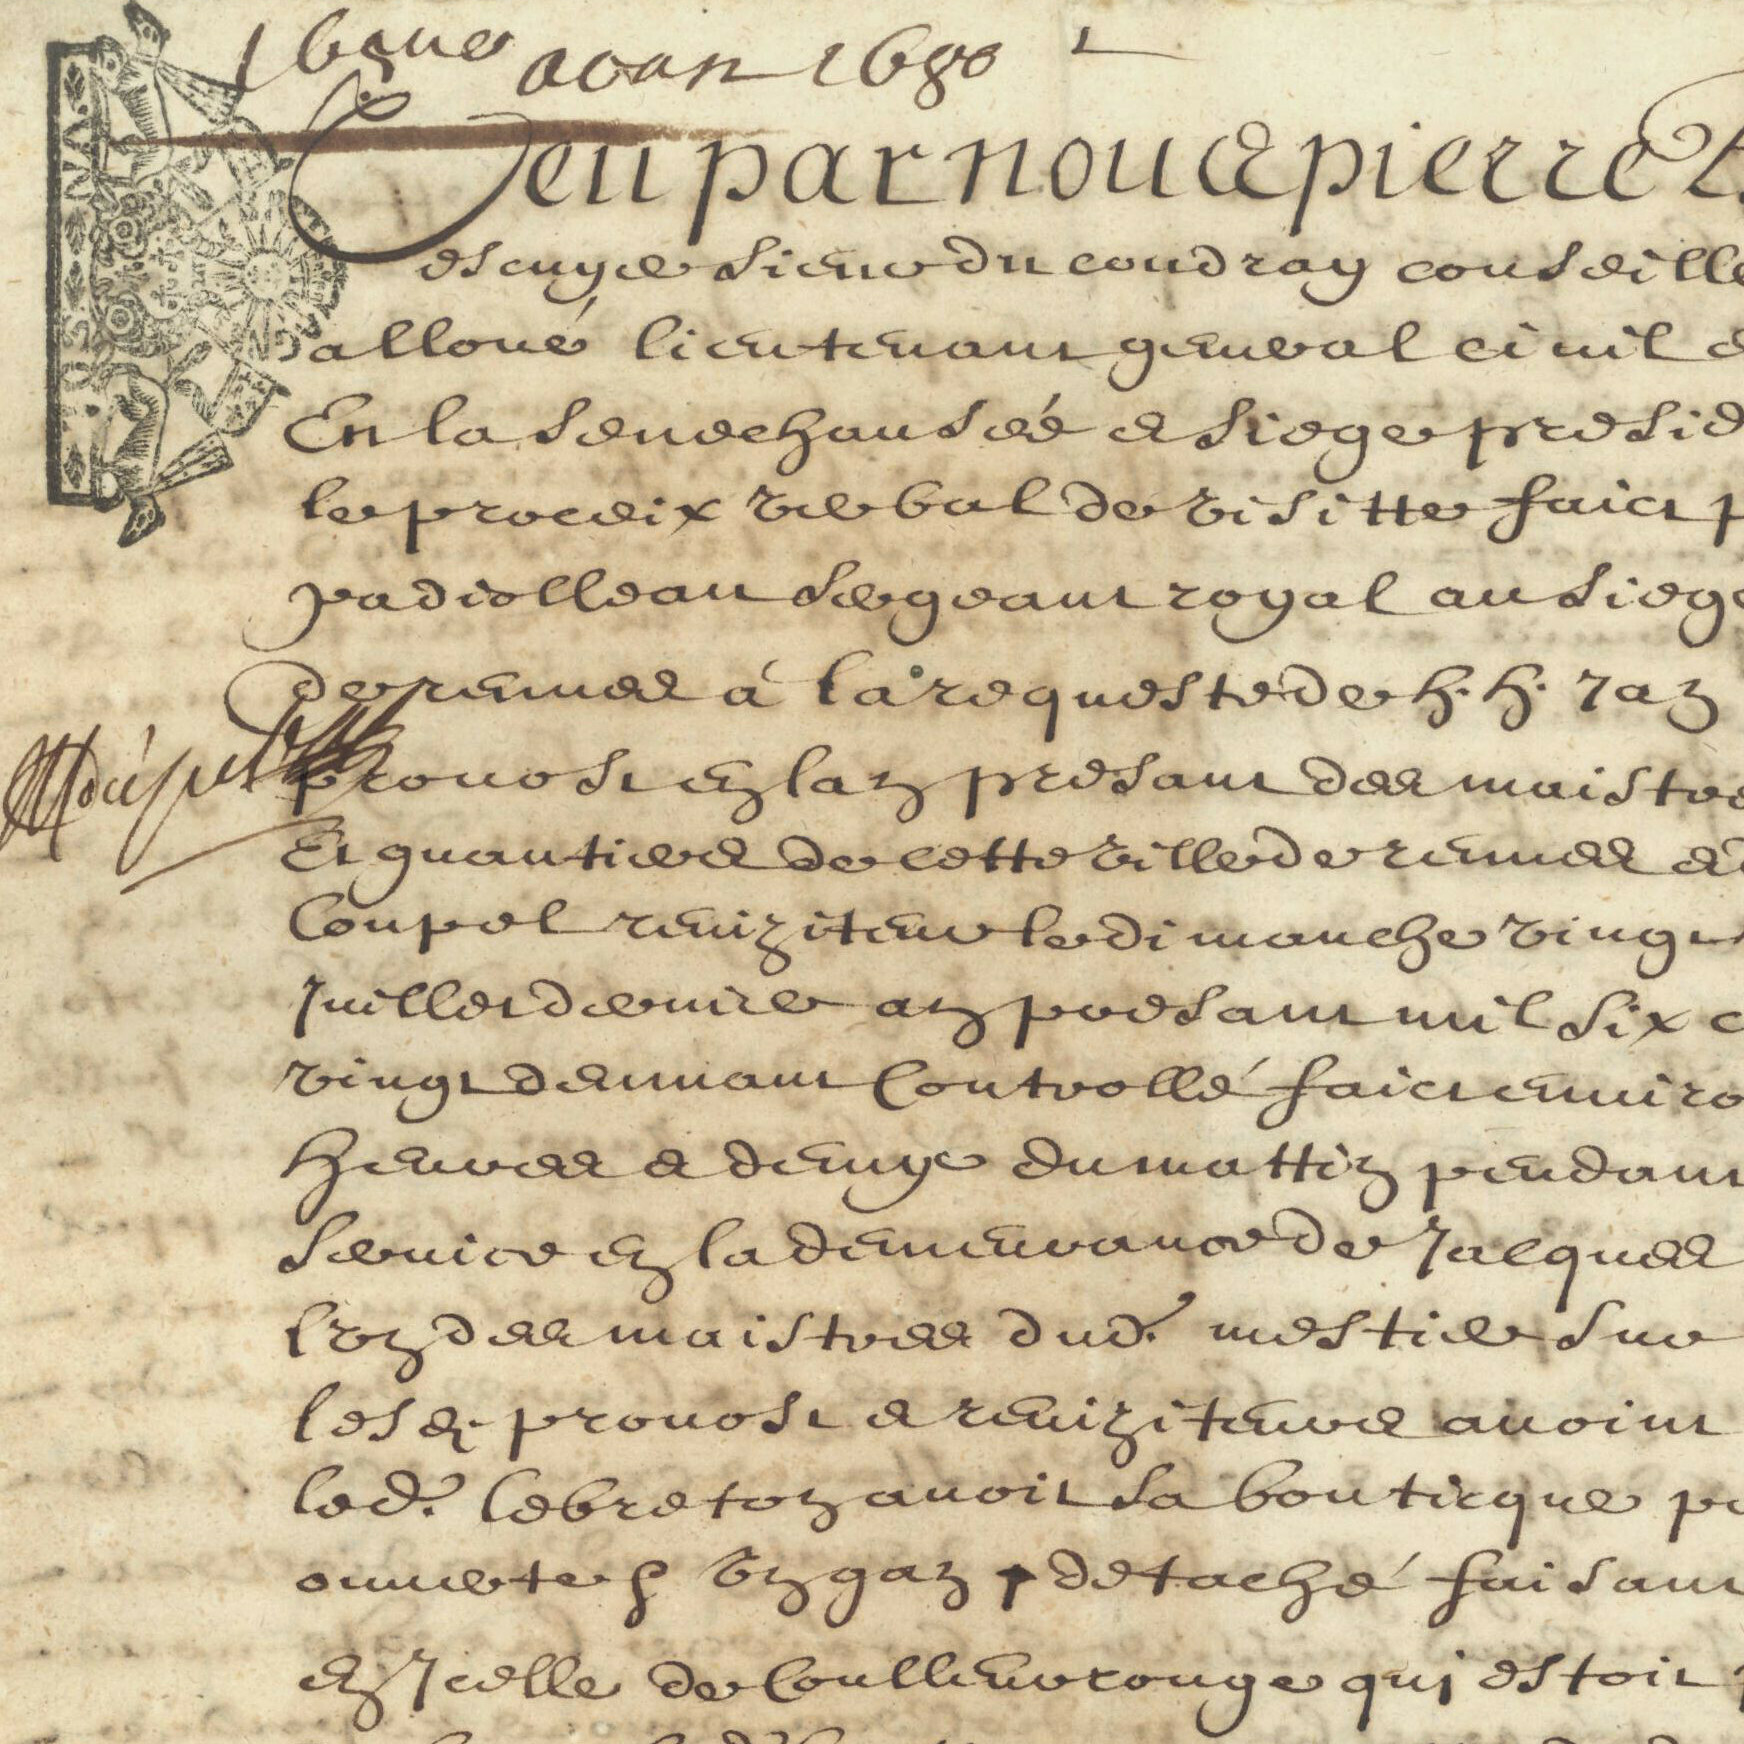 aoust 1680
Veu par nous pierre
escuyer sieur du coudray conseille
alloué lieutenant general civil e
En la senechaussée et siege presid
le proceix verbal de visitte faict p
padiolleau sergeant royal au siege
de rennes à la requeste de h. h. Jan
provost en lan presant des maistre
Et gantiers de cette ville de rennes et
Coupel reviziteur le dimanche vingt
Juillet dernier an presant mil six c
vingt devant Controllé faict enviro
Heures et demye du mattin pendant
Service en la demeurance de Jacques
lun des maistres dud. mestier sur
lesd. provost et reviziteurs avoint
led. lebreton avoir sa bouticque
ouverte & un gan detaché faisant
en Icelle de Coulleur rouge qui estoit